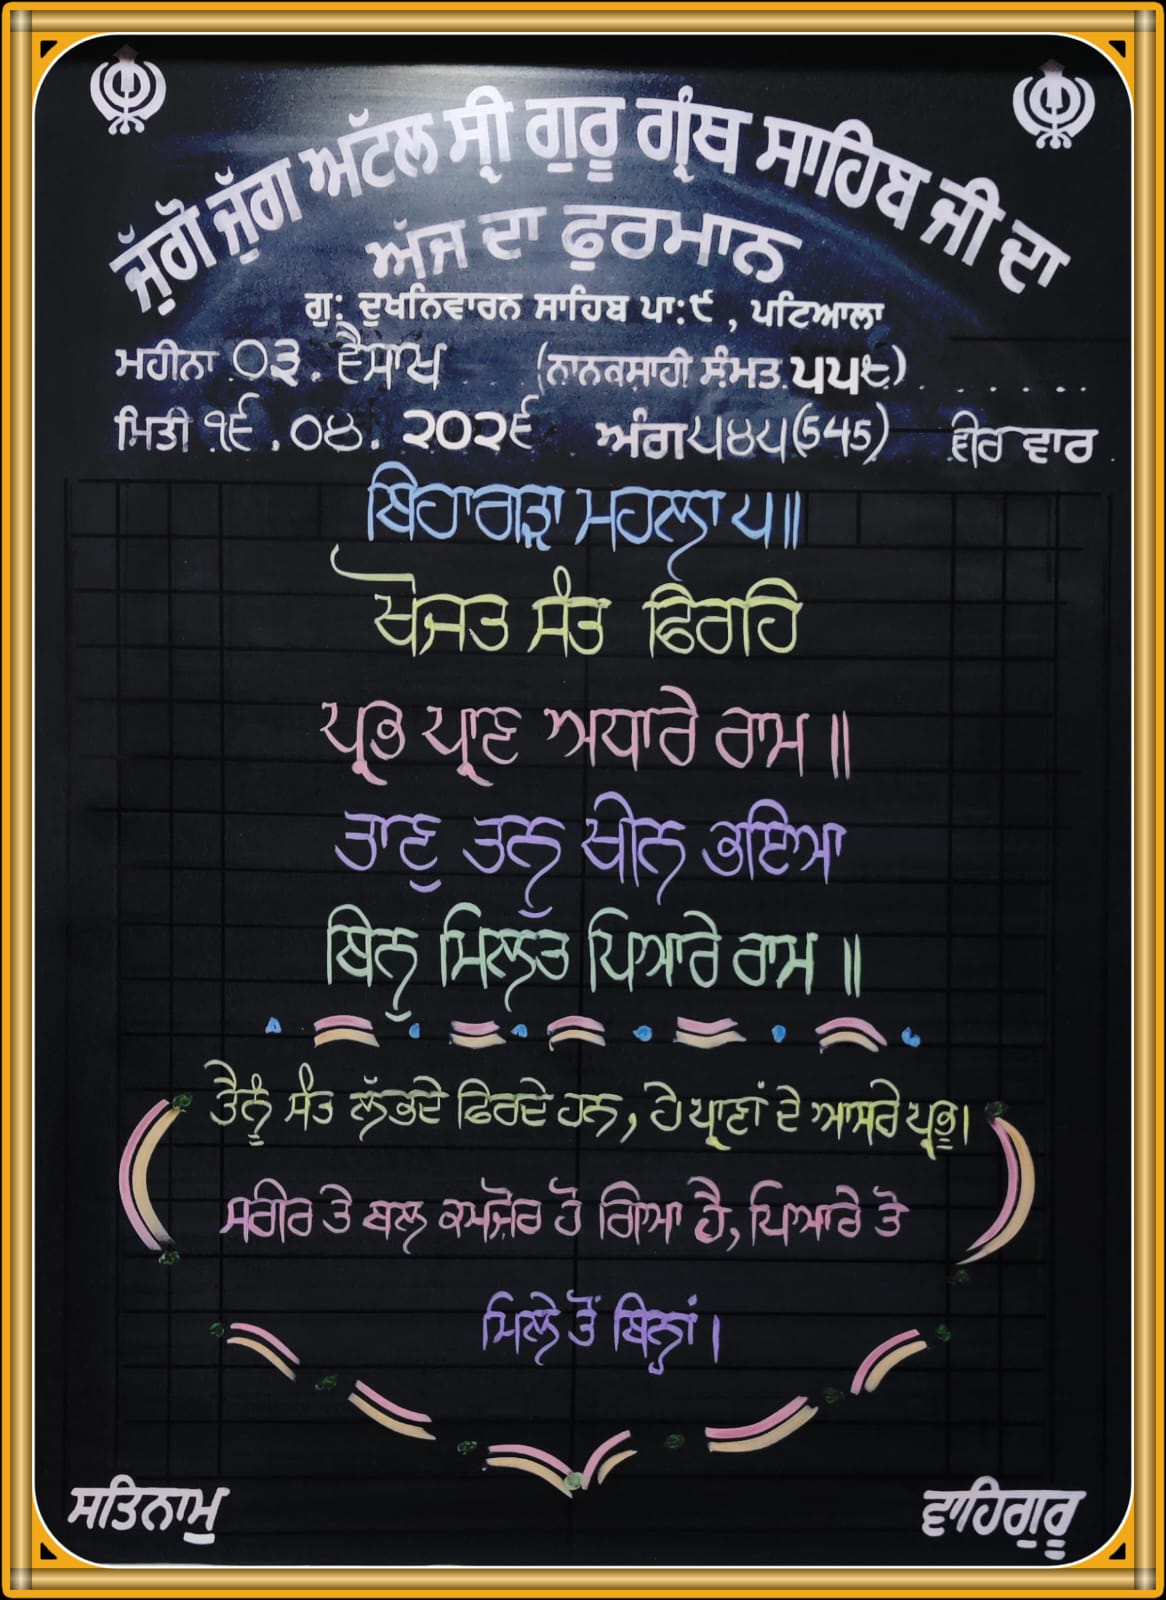 ਜੁੱਗੋ ਜੁੱਗ ਅੱਟੱਲ ਸ੍ਰੀ ਗੁਰੂ ਗ੍ਰੰਥ ਸਾਹਿਬ ਜੀ ਦਾ
ਅੱਜ ਦਾ ਫੁਰਮਾਨ
ਗੁ: ਦੁਖਨਿਵਾਰਨ ਸਾਹਿਬ ਪਾ:੯ , ਪਟਿਆਲਾ
ਮਹੀਨਾ ੦੩. ਵੈਸਾਖ (ਨਾਨਕਸ਼ਾਹੀ ਸੰਮਤ ੫੫੮)
ਮਿਤੀ ੧੬.੦੪. ੨੦੨੬ ਅੰਗ ੫੪੫(545) ਵੀਰ ਵਾਰ
ਬਿਹਾਗੜਾ ਮਹਲਾ ੫॥
ਖੋਜਤ ਸੰਤ ਫਿਰਹਿ
ਪ੍ਰਭ ਪ੍ਰਾਣ ਅਧਾਰੇ ਰਾਮ ॥
ਤਾਣੁ ਤਨੁ ਖੀਨ ਭਇਆ
ਬਿਨੁ ਮਿਲਤ ਪਿਆਰੇ ਰਾਮ ॥
ਤੈਨੂੰ ਸੰਤ ਲੱਭਦੇ ਫਿਰਦੇ ਹਨ, ਹੇ ਪ੍ਰਾਣਾਂ ਦੇ ਆਸਰੇ ਪ੍ਰਭੂ।
ਸਰੀਰ ਤੇ ਬਲ ਕਮਜ਼ੋਰ ਹੋ ਗਿਆ ਹੈ, ਪਿਆਰੇ ਤੋ
ਮਿਲੇ ਤੋਂ ਬਿਨ੍ਹਾਂ।
ਸਤਿਨਾਮੁ
ਵਾਹਿਗੁਰੂ